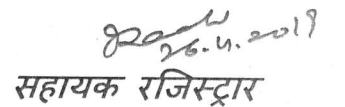 26.4.2019
सहायक रजिस्ट्रार